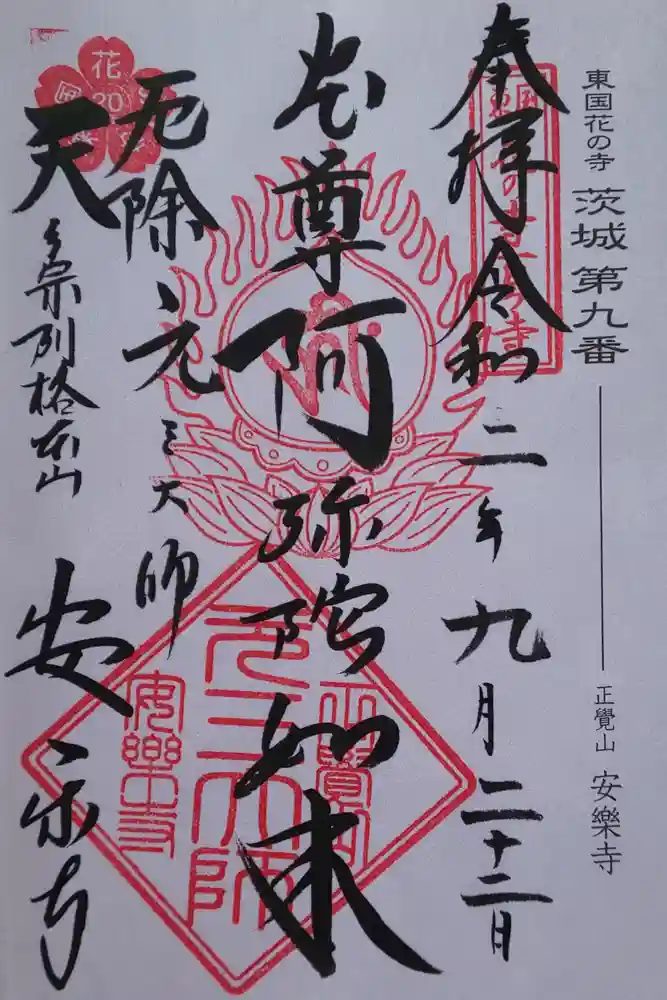 東国花の寺 茨城 第九番 正覺山 安樂寺
奉拝 令和二年九月二十二日
本尊 阿弥陀如来
厄除 元三大師
天台宗別格本山 安楽寺
花
20
元三大師
正覺山
安樂寺